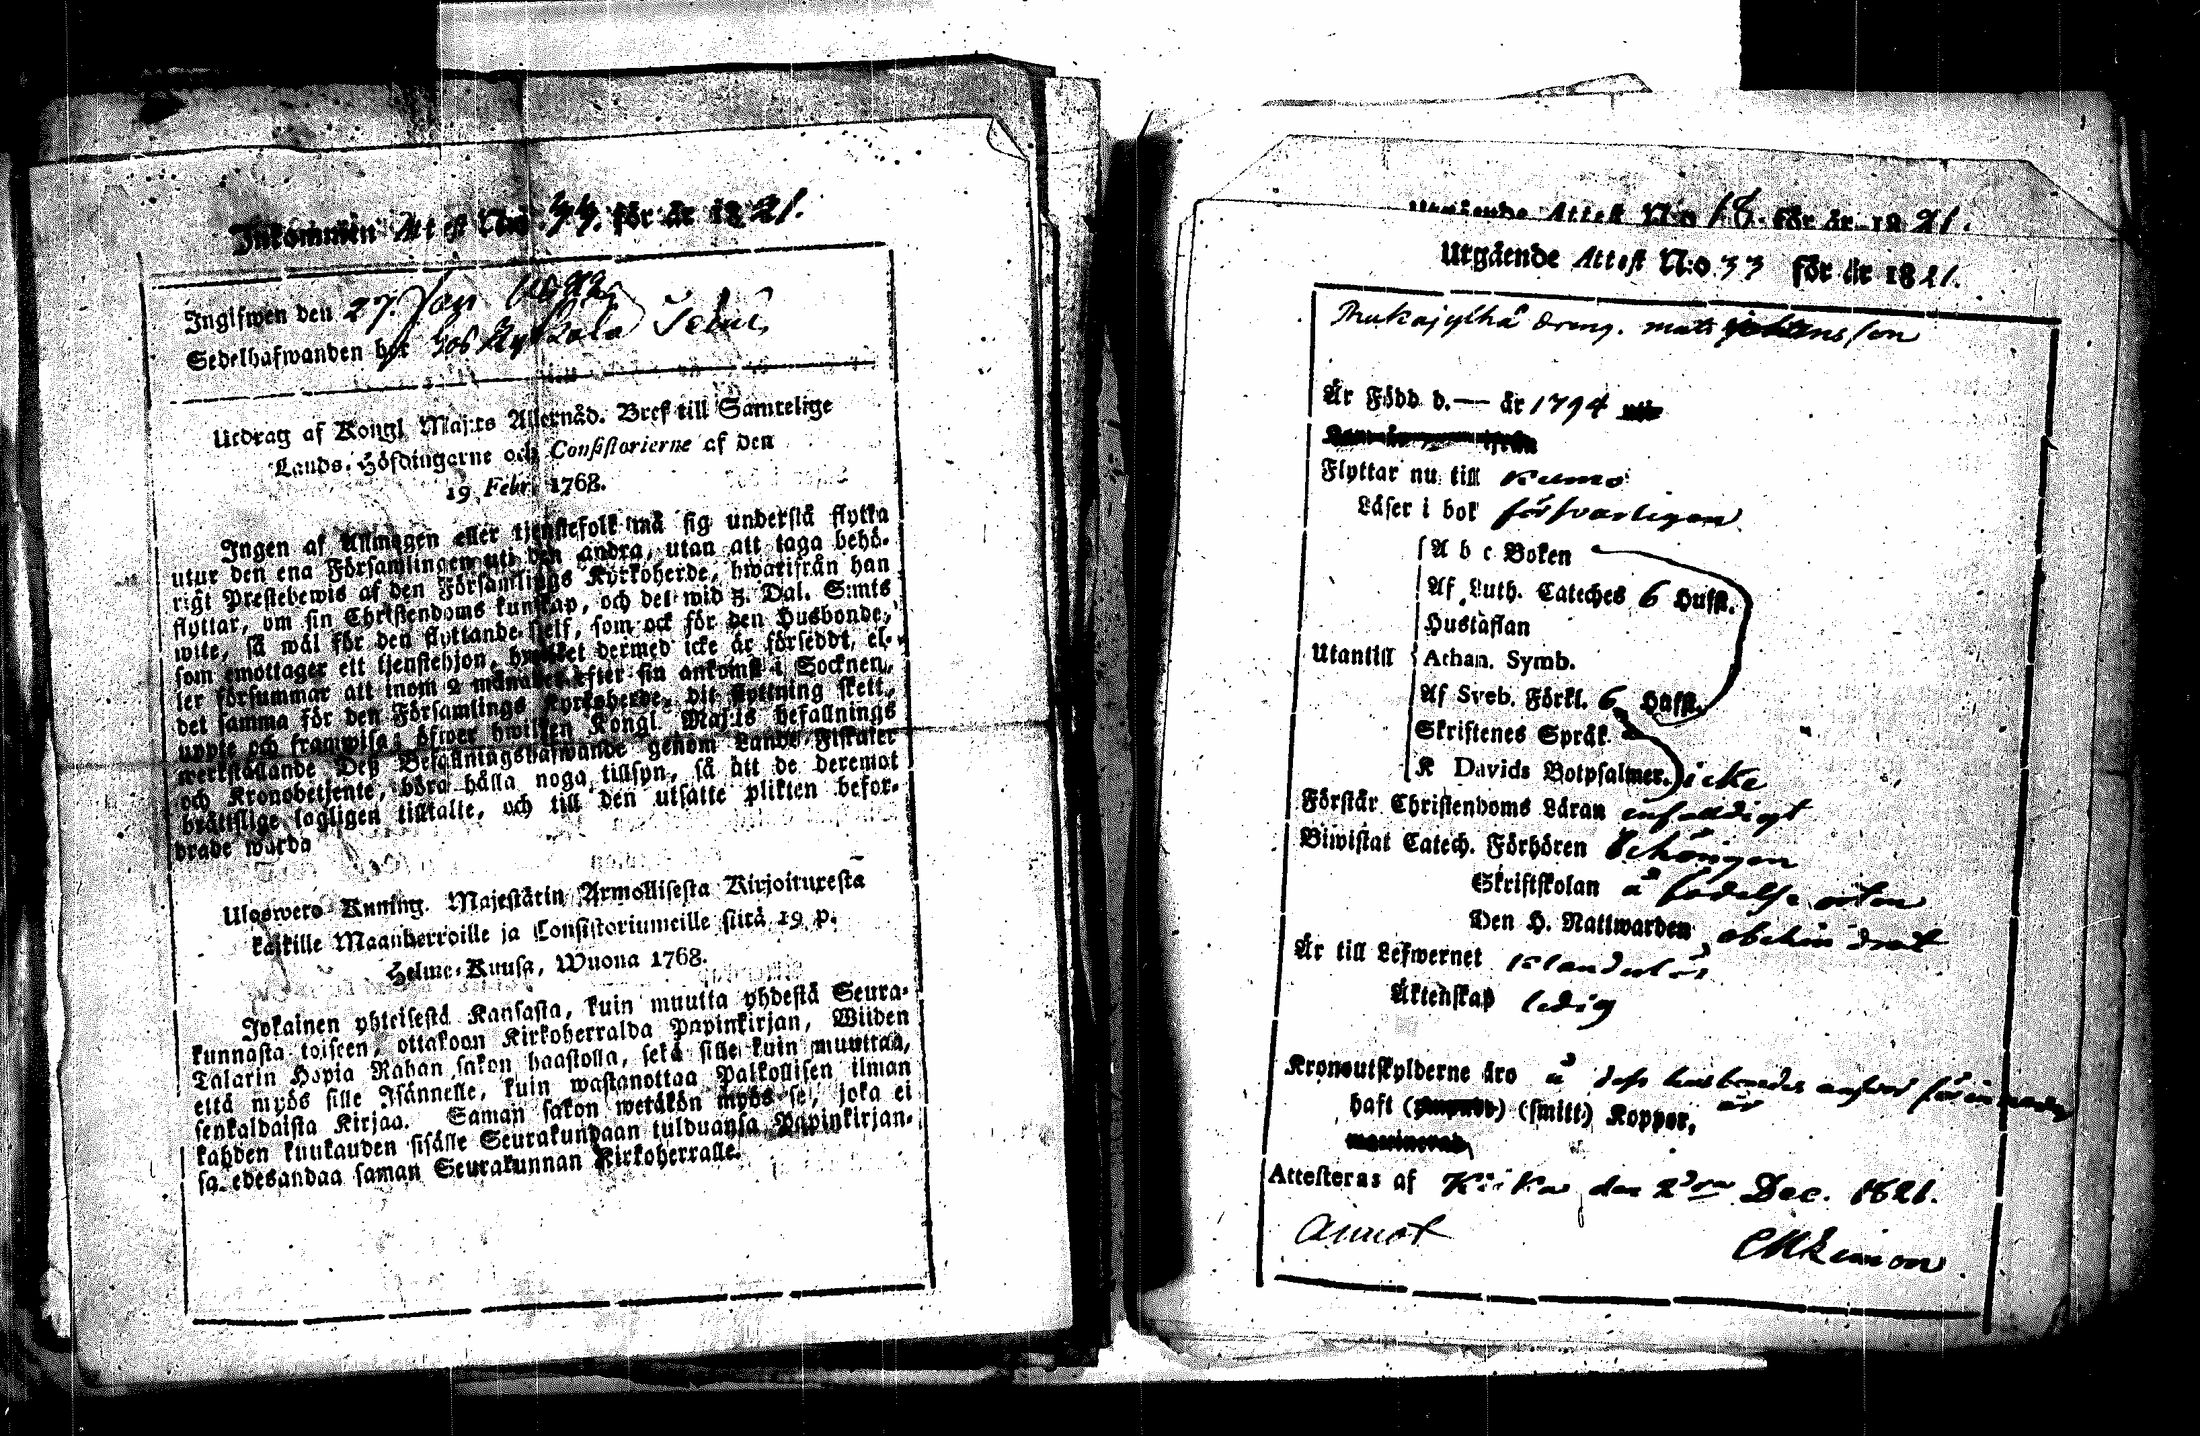 Inkommen Attest N:o 34. för år 1821.
Ingifwen den 27. Jan 1822
Sedelhafwanden bor hos Kykala
Utdrag af Kongl. Maj:ts Allernåd. Bref till Samtelige
Lands-Höfdingarne och Consistorierne af den
19 Febr. 1768.
Ingen af Allmogen eller tjenstefolk må sig understå flytta
utur den ena Församlingen uti den andra, utan att taga behö-
rigt Prestebewis af den Församlings Kyrkoherde, hwarifrån han
flyttar, om sin Christendoms kunskap, och det wid 5. Dal. S:mts
wite, så wäl för den flyttande sjelf, som ock för den Husbonde,
som emottager ett tjenstehjon, hwilket dermed icke är försedt, el-
ler försummar att inom 2 månader efter sin ankomst i Socknen,
det samma för den Församlings Kyrkoherde, dit flyttning skett,
uppte och framwisa; öfwer hwilken Kongl. Maj:ts befallnings
werkställande Deß Befallningshafwande genom Lands Fiskaler
och Kronobetjente, böra hålla noga tillsyn, så att de deremot
bråttslige lagligen tilltalte, och till den utsatte plikten befor-
drade warda
Ulosweto Kuning. Majestätin Armollisesta Kirjoituxesta
kaikille Maanherroille ja Consistoriumeille siitä 19 p.
Helme-Kuusa, Wuona 1768.
Jokainen yhteisestä Kansasta, kuin muutta yhdestä Seura-
kunnasta toiseen, ottakoon Kirkoherralda Papinkirjan, Wiiden
Talarin Hopia Rahan sakon haastolla, sekä sille kuin muuttaa,
että myös sille Isännelle, kuin wastanottaa Palkollisen ilman
senkaldaista Kirjaa. Saman sakon wetäkön myös se, joka ei
kahden kuukauden sisälle Seurakundaan tulduansa Papinkirjan-
sa edesandaa saman Seurakunnan Kirkoherralle.
Utgående Attest N:o 18. för år 1821.
Utgående Attest N:o 33 för år 1821.
dreng. mats son
Är Född d. — år 1794
Flyttar nu till Kumo
Läser i bok försvarligen
A b c Boken
Af Luth. Cateches 6 Hufst.
Hustaflan
Utantill Athan. Symb.
Af Sveb. Förkl. 6 Hufst.
Skriftenes Språk
K Davids Botpsalmer. icke
Förstår Christendoms Läran enfaldigt
Biwistat Catech. Förhören behörigen
Skriftskolan å födelse orten
Den H. Nattwarden obehindradt
Är till Lefwernet klanderlös
Äktenskap ledig
Kronoutskylderne äro å dess husbondes ansvar för innevarande år
haft (smitt) Kopper,
Attesteras af Kiika den 2dra Dec. 1821.